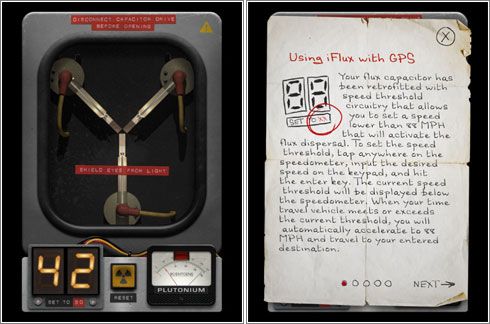 DISCONNECT CAPACITOR DRIVE
BEFORE OPENING
SHIELD EYES FROM LIGHT
42
SET TO 50
RESET
PLUTONIUM
X
Using iFlux with GPS
88
SET TO XX
Your flux capacitor has
been retrofitted with
speed threshold
circuitry that allows
you to set a speed
lower than 88 MPH
that will activate the
flux dispersal. To set the speed
threshold, tap anywhere on the
speedometer, input the desired
speed on the keypad, and hit
the enter key. The current speed
threshold will be displayed below
the speedometer. When your time
travel vehicle meets or exceeds
the current threshold, you will
automatically accelerate to 88
MPH and travel to your entered
destination.
NEXT